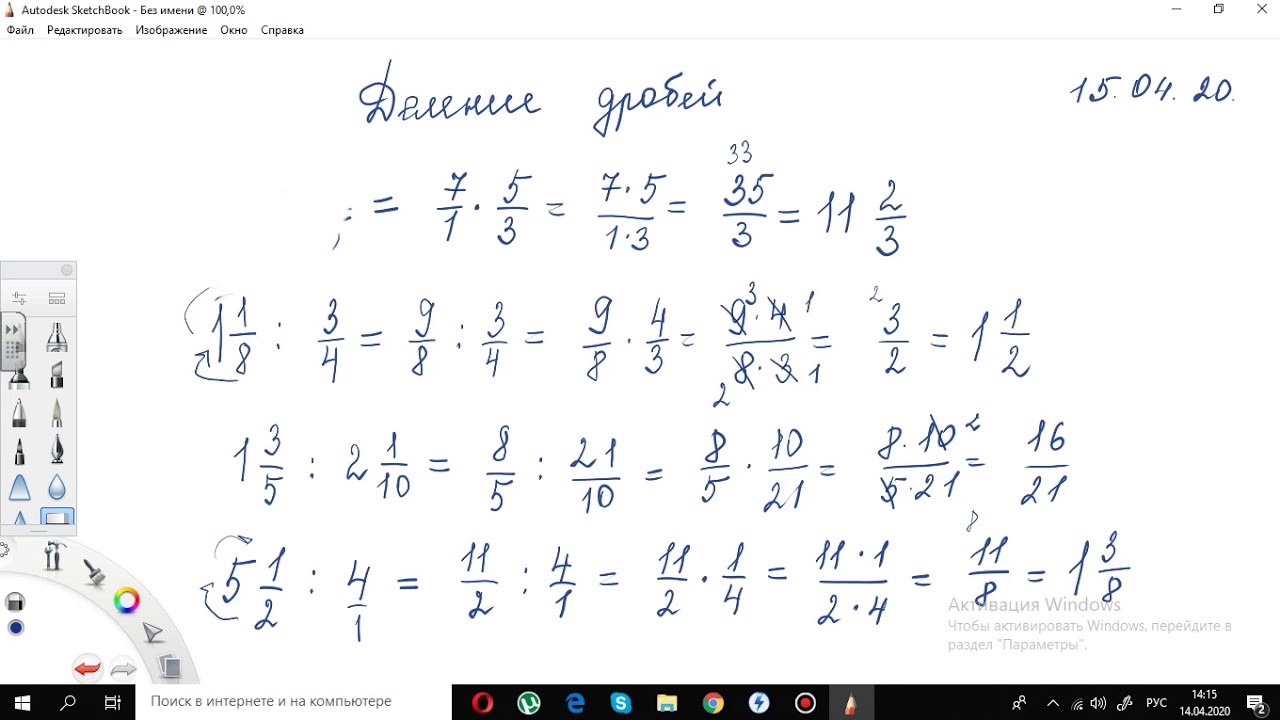 Autodesk SketchBook - Без имени @ 100,0%
Файл Редактировать Изображение Окно Справка
Деление дробей
15.04.20.
= 7/1 · 5/3 = 7·5/1·3 = 33 35/3 = 11 2/3
1 1/8 : 3/4 = 9/8 : 3/4 = 9/8 · 4/3 = 9 3 · 4 1/8 2 · 3 1 = 2 3/2 = 1 1/2
1 3/5 : 2 1/10 = 8/5 : 21/10 = 8/5 · 10/21 = 8·10 2/5·21 = 16/21
5 1/2 : 4/1 = 11/2 : 4/1 = 11/2 · 1/4 = 11·1/2·4 = 8 11/8 = 1 3/8
Активация Windows
Чтобы активировать Windows, перейдите в
раздел "Параметры".
Поиск в интернете и на компьютере
РУС
14:15
14.04.2020
2